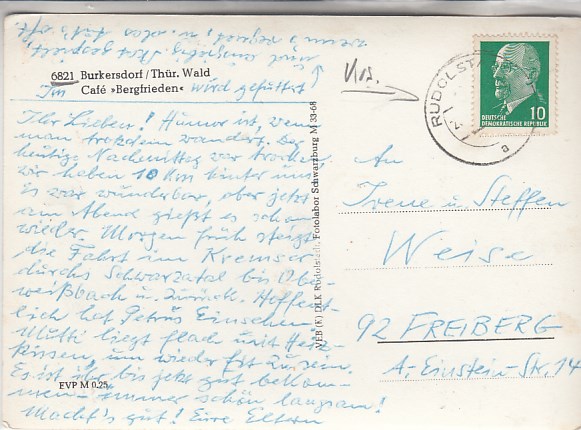 6821 Burkersdorf/Thür. Wald
Café »Bergfrieden«
Im wird gefüttert!
Ihr Lieben! Humor ist, wenn
man trotzdem wandert. Der
heutige Nachmittag war trocken,
wir haben 10 km hinter uns.
Es war wunderbar, aber jetzt
am Abend gießt es schon
wieder. Morgen früh steigt
die Fahrt im Kremser
durchs Schwarzatal bis Obe-
weißbach u. zurück. Hoffent-
lich hat Petrus Einsehen.
Mutti liegt flach mit Heiz-
kissen, um wieder fit zu sein.
Es ist ihr bis jetzt gut bekom-
men – immer schön langsam!
Macht's gut! Eure Eltern
EVP M 0,25
VEB (K) DLK Rudolstadt, Fotolabor Schwarzburg M 33-68
RUDOLST
a
DEUTSCHE
DEMOKRATISCHE REPUBLIK
10
An
Irene u. Steffen
Weise
92 FREIBERG
A.-Einstein-Str. 14